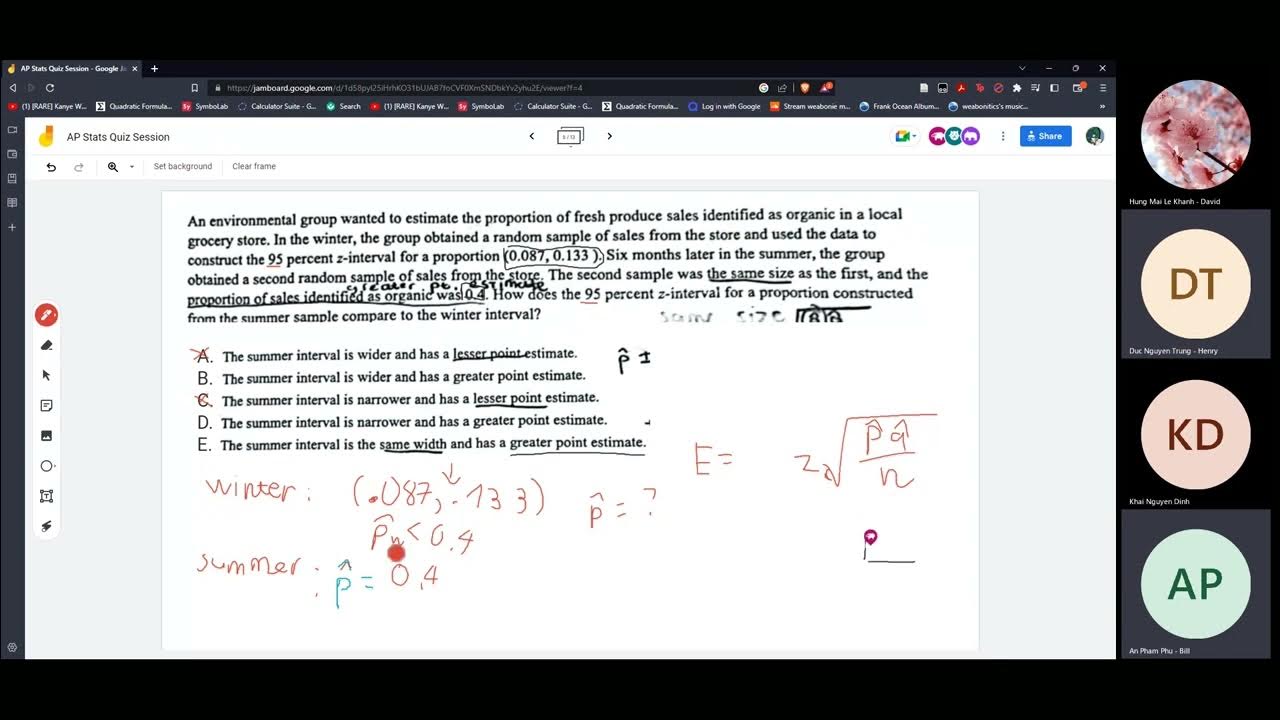 AP Stats Quiz Session - Google Ja
https://jamboard.google.com/d/1d58pyI25iHrhKO31bUJAB7foCVF0XmSNDbkYv2yhu2E/viewer?f=4
(1) [RARE] Kanye W...
Quadratic Formula...
SymboLab
Calculator Suite - G...
Search
(1) [RARE] Kanye W...
SymboLab
Calculator Suite - G...
Quadratic Formula...
Log in with Google
Stream weabonie m...
Frank Ocean Album...
weabonitics's music...
AP Stats Quiz Session
5 / 13
Share
Set background
Clear frame
An environmental group wanted to estimate the proportion of fresh produce sales identified as organic in a local
grocery store. In the winter, the group obtained a random sample of sales from the store and used the data to
construct the 95 percent z-interval for a proportion (0.087, 0.133). Six months later in the summer, the group
obtained a second random sample of sales from the store. The second sample was the same size as the first, and the
greater pt. estimate
proportion of sales identified as organic was 0.4. How does the 95 percent z-interval for a proportion constructed
from the summer sample compare to the winter interval?
same size
A. The summer interval is wider and has a lesser point estimate.
p̂ ±
B. The summer interval is wider and has a greater point estimate.
C. The summer interval is narrower and has a lesser point estimate.
D. The summer interval is narrower and has a greater point estimate.
E. The summer interval is the same width and has a greater point estimate.
E = z√(p̂q̂/n)
winter: (.087, .133) p̂ = ?
p̂w < 0.4
summer: p̂ = 0.4
Hung Mai Le Khanh - David
DT
Duc Nguyen Trung - Henry
KD
Khai Nguyen Dinh
AP
An Pham Phu - Bill